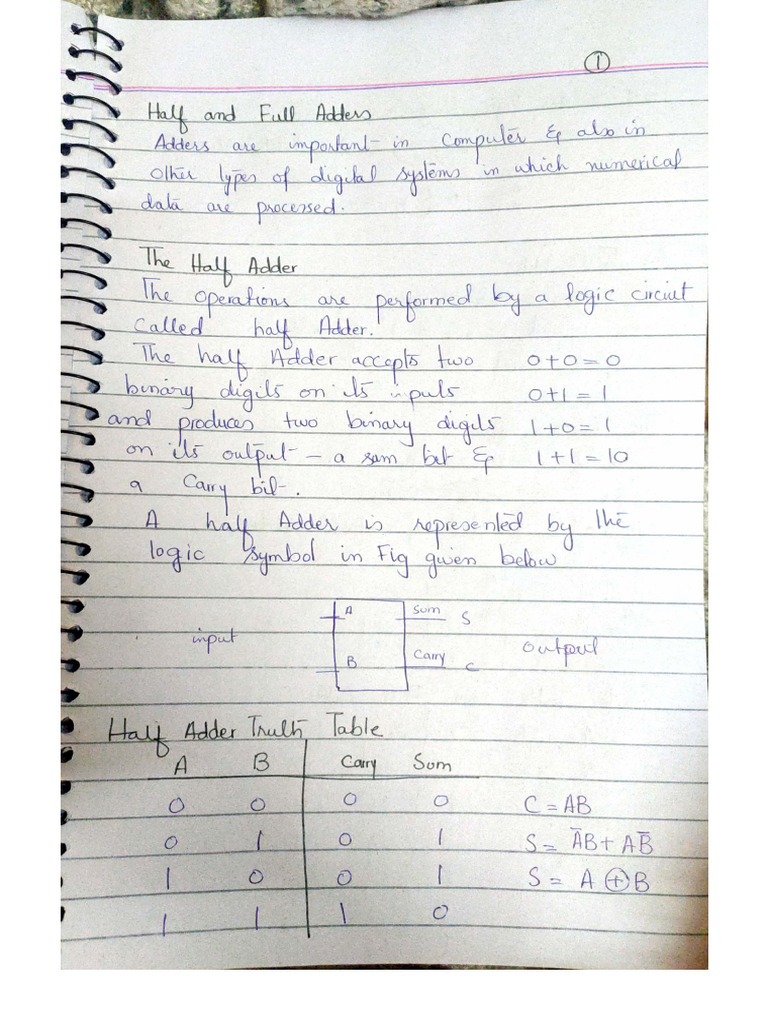 ①
Half and Full Adders
Adders are important in computer & also in
other types of digital systems in which numerical
data are processed.
The Half Adder
The operations are performed by a logic circiut
called half Adder.
The half Adder accepts two 0+0=0
binary digits on its inputs 0+1=1
and produces two binary digits 1+0=1
on its output – a sum bit & 1+1=10
a Carry bit.
A half Adder is represented by the
logic symbol in Fig given below
A Sum S
input output
B Carry C
Half Adder Truth Table
A B Carry Sum
0 0 0 0 C = AB
0 1 0 1 S = A̅B + AB̅
1 0 0 1 S = A ⊕ B
1 1 1 0